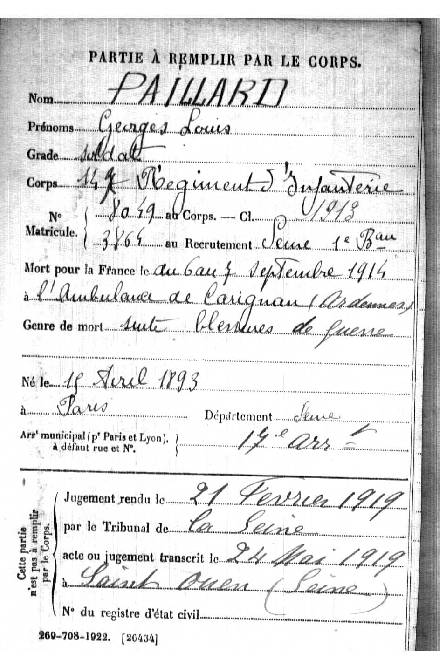 PARTIE À REMPLIR PAR LE CORPS.
Nom PAILLARD
Prénoms Georges Louis
Grade soldat
Corps 147 Régiment d'Infanterie
N° Matricule. { 8049 au Corps. — Cl. 1913
3864 au Recrutement Seine 1e Bau
Mort pour la France le du 6 au 7 septembre 1914
à l'Ambulance de Carignan (Ardennes)
Genre de mort suite blessures de guerre
Né le 15 Avril 1893
à Paris Département Seine
Arrt municipal (pr Paris et Lyon), à défaut rue et N°. } 17e arrt
Cette partie n'est pas à remplir par le Corps.
Jugement rendu le 21 Fevrier 1919
par le Tribunal de La Seine
acte ou jugement transcrit le 24 Mai 1919
à Saint Ouen (Seine)
N° du registre d'état civil
269-708-1922. [26434]